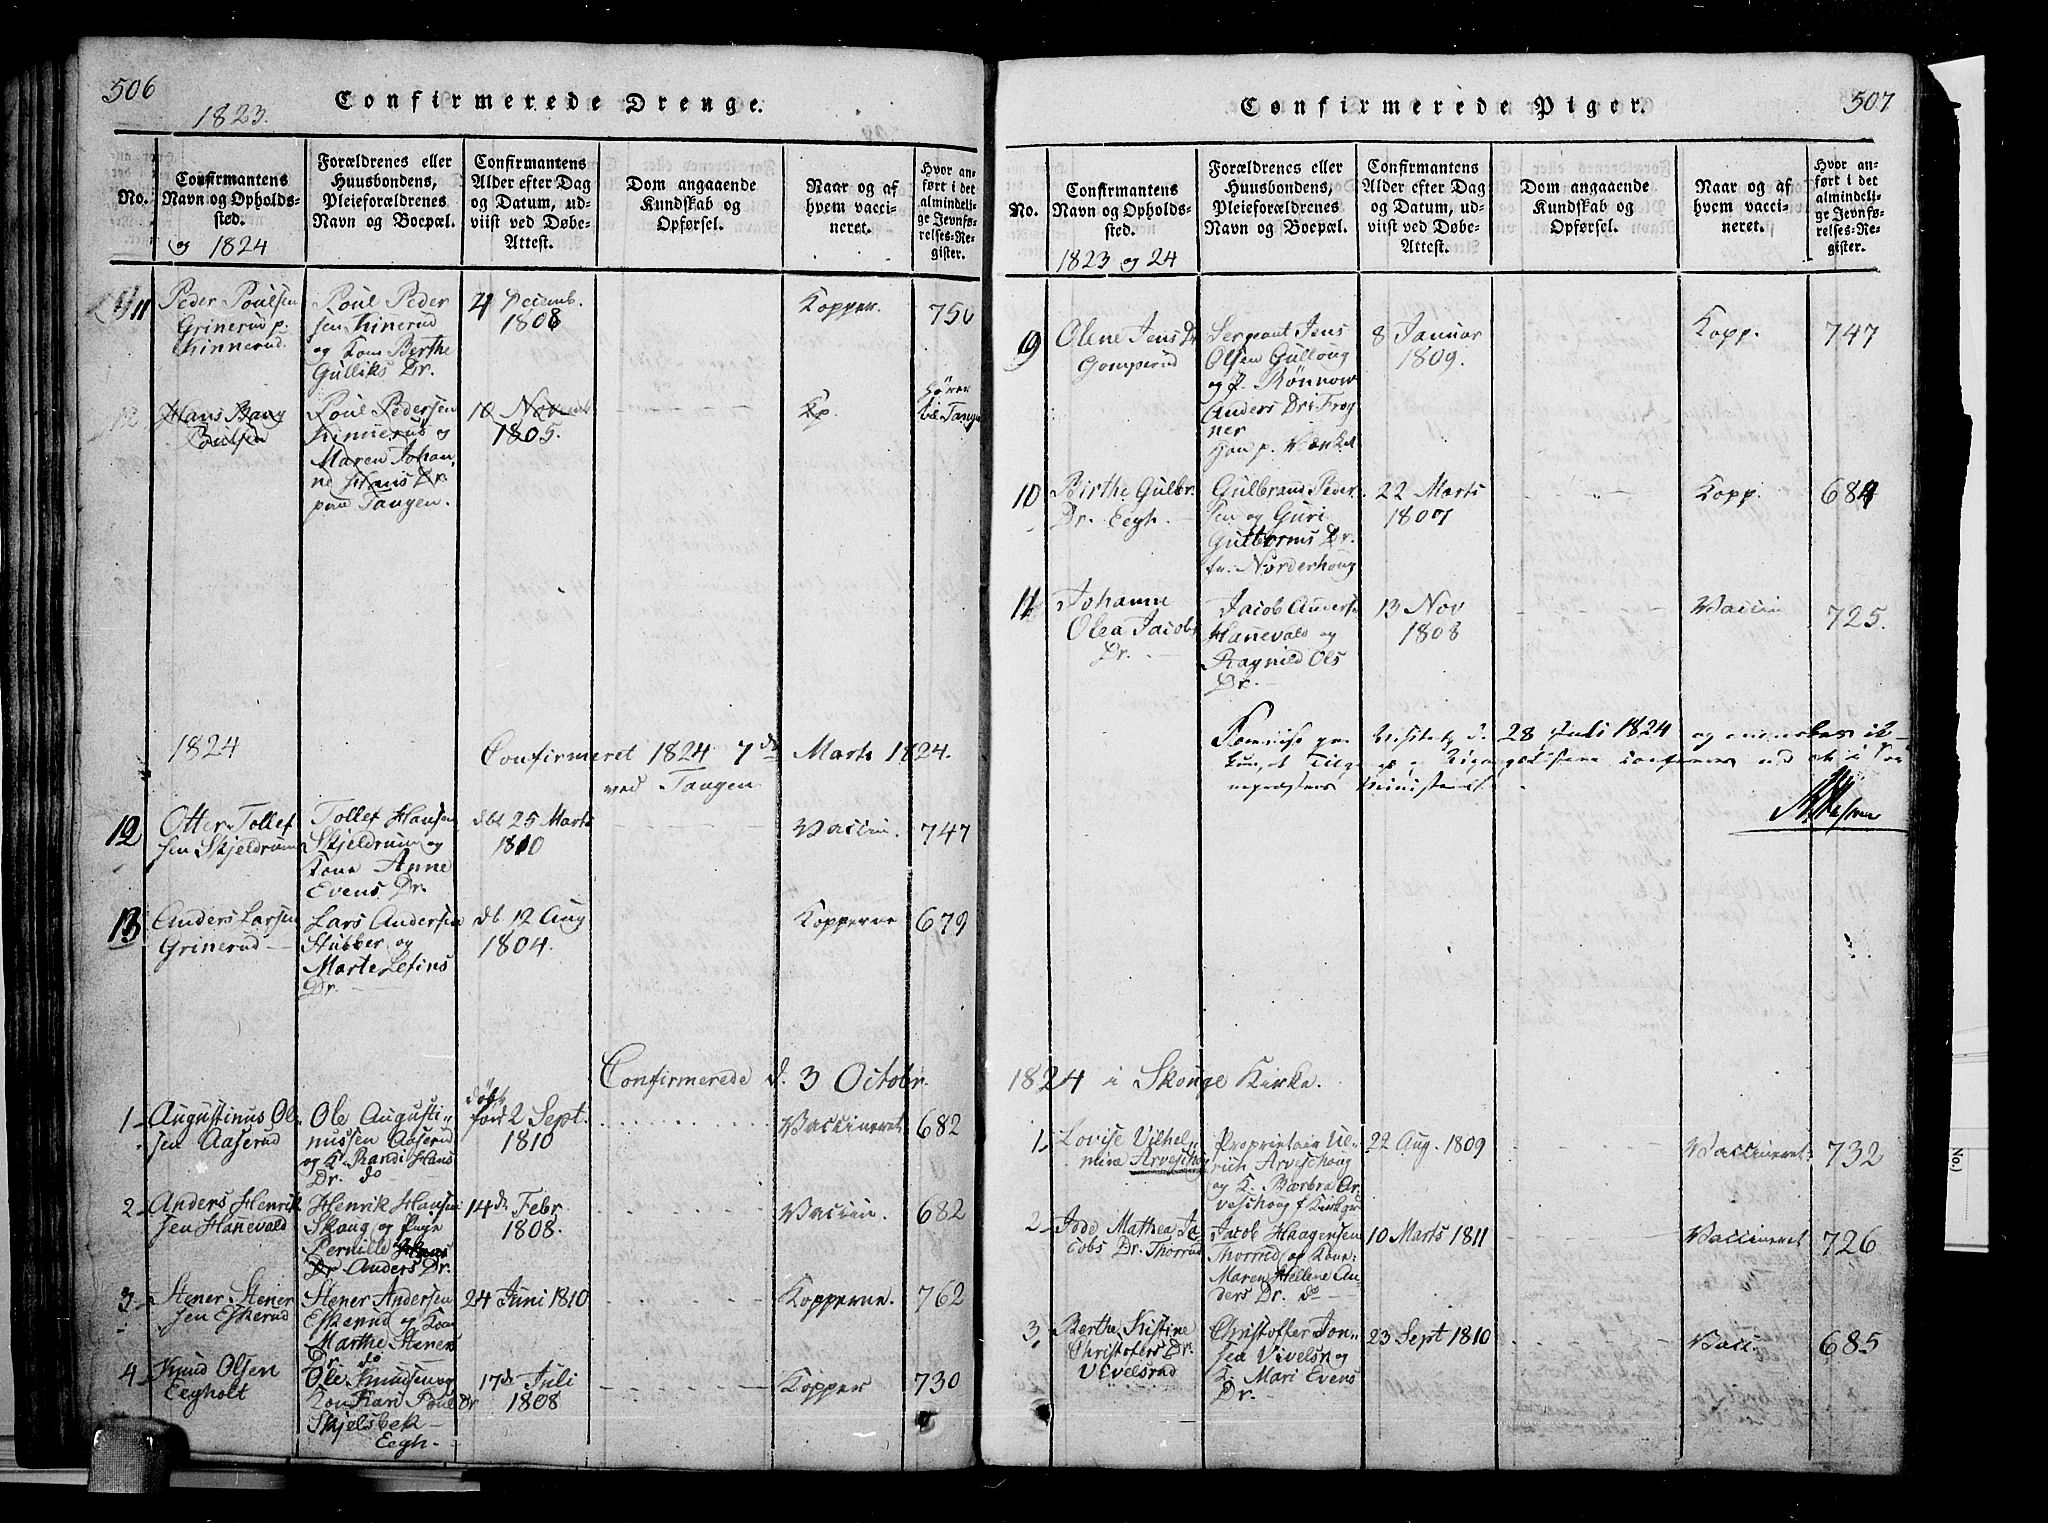 506
1823.
Confirmerede Drenge.
No.
Confirmantens
Navn og Opholds-
sted.
og 1824
Forældrenes eller
Huusbondens,
Pleieforældrenes
Navn og Boepæl.
Confirmantens
Alder efter Dag
og Datum, ud-
viist ved Døbe-
Attest.
Dom angaaende
Kundskab og
Opførsel.
Naar og af
hvem vacci-
neret.
Hvor an-
ført i det
almindeli-
ge Jevnfø-
relses-Re-
gister.
11
Peder Poulsen
Grinerud p.
Kinnerud.
Poul Peder
sen Kinerud
og Kone Berthe
Gulliks Dr.
4 Decemb.
1808
Kopper.
750
12
Hans Bang
Poulsen
Poul Pedersen
Kinnerud og
Maren Johan,
ne Hans Dr.
paa Tangen.
10 Novemb
1805.
Kp.
hører
til Tangen
1824
Confirmeret 1824 7de Marts 1824.
ved Tangen
12
Otter Tollef
sen Skjeldrum
Tollef Hansen
Skjeldrum og
Kone Anne
Evens Dr.
dbt 25 Marts
1810
Vaccin.
747
13
Anders Larsen
Grinerud
Lars Andersen
Stubber og
Marte Lefins
Dr.
db 12 Aug
1804.
Kopperne
679
Confirmerede d. 3 Octobr.
1
Augustinus Ol-
sen Aaserud
Ole Augusti-
nussen Aaserud
og K. Randi Hans
Dr. do
døbt
2 Sept.
1810
Vaccineret
682
2
Anders Henrik
sen Hanevald
Henrik Hansen
Skoug og Pige
Pernille Hans
Dr Anders Dr.
14de Febr
1808.
Vaccin.
682
3
Stener Stener
sen Eskerud
Stener Andersen
Eskerud og Kone
Marthe Steners
Dr. do
24 Juni 1810
Kopperne.
762
4
Knud Olsen
Eegholt
Ole Knudsen og
Kone Kari Poul Dr
Skjelsbek
Eegh.
17de Juli
1808
Kopper
730
507
Confirmerede Piger.
No.
Confirmantens
Navn og Opholds-
sted.
1823 og 24
Forældrenes eller
Huusbondens,
Pleieforældrenes
Navn og Boepæl.
Confirmantens
Alder efter Dag
og Datum, ud-
viist ved Døbe-
Attest.
Dom angaaende
Kundskab og
Opførsel.
Naar og af
hvem vacci-
neret.
Hvor an-
ført i det
almindeli-
ge Jevnfø-
relses-Re-
gister.
9
Olene Jens Dr
Gomperud
Sergeant Jens
Olsen Gulloug
og p. Rönnow
Anders Dr i Frog
ner
han p. Værket
8 Januar
1809.
Kopp.
747
10
Birthe Gulbr.
Dr. Eegh.
Gulbrand Peder
sen og Guri
Gulbrms Dr.
fr. Norderhoug
22 Marts
1807
Kopp.
684
11
Johanne
Olea Jacobs
Dr.
Jacob Anders
Hanevald og
Ragnild Ols
Dr.
13 Nov
1808
Vaccin
725.
28 Juli 1824
1824 i Skouge Kirke.
1
Lovise Vilhel,
mine Arveschoug
Proprietair Ul-
rich Arveschoug
og K. Barbra Ar
veschoug f Kirkgr
22 Aug. 1809
Vaccineret
732
2
Jode Mathea Ja
cobs Dr. Thorrud
Jacob Haagensen
Thorrud og Kone
Maren Hellene An
ders Dr. do
10 Marts 1811
Vaccineret
726
3
Berthe Kistine
Christofers Dr.
Vivelsrud
Christoffer Jon-
sen Vivelsr og
K. Mari Evens
Dr.
23 Sept 1810
Vacc.
685
No.)